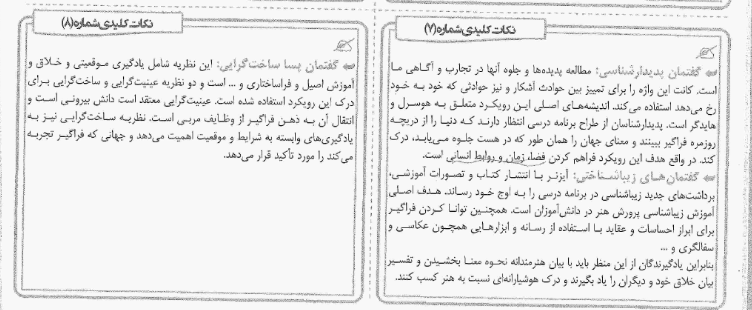 نکات کلیدی شماره (۷)
گفتمان پدیدارشناسی: مطالعه پدیده‌ها و جلوه آنها در تجارب و آگاهی ما
است. کانت این واژه را برای تمییز بین حوادث آشکار و نیز حوادثی که خود به خود
رخ می‌دهد استفاده می‌کند. اندیشه‌های اصلی این رویکرد متعلق به هوسرل و
هایدگر است. پدیدارشناسان از طراح برنامه درسی انتظار دارند که دنیا را از دریچه
روزمره فراگیر ببینند و معنای جهان را همان طور که در هست جلوه می‌یابد، درک
کند. در واقع هدف این رویکرد فراهم کردن فضا، زمان و روابط انسانی است.
گفتمان‌های زیباشناختی: آیزنر با انتشار کتاب و تصورات آموزشی،
برداشت‌های جدید زیباشناسی در برنامه درسی را به اوج خود رساند. هدف اصلی
آموزش زیباشناسی پرورش هنر در دانش‌آموزان است. همچنین توانا کردن فراگیر
برای ابراز احساسات و عقاید با استفاده از رسانه و ابزارهایی همچون عکاسی و
سفالگری و ...
بنابراین یادگیرندگان از این منظر باید با بیان هنرمندانه نحوه معنا بخشیدن و تفسیر
بیان خلاق خود و دیگران را یاد بگیرند و درک هوشیارانه‌ای نسبت به هنر کسب کنند.
نکات کلیدی شماره (۸)
گفتمان پسا ساخت‌گرایی: این نظریه شامل یادگیری موقعیتی و خلاق و
آموزش اصیل و فراساختاری و ... است و دو نظریه عینیت‌گرایی و ساخت‌گرایی برای
درک این رویکرد استفاده شده است. عینیت‌گرایی معتقد است دانش بیرونی است و
انتقال آن به ذهن فراگیر از وظایف مربی است. نظریه ساخت‌گرایی نیز به
یادگیری‌های وابسته به شرایط و موقعیت اهمیت می‌دهد و جهانی که فراگیر تجربه
می‌کند را مورد تأکید قرار می‌دهد.